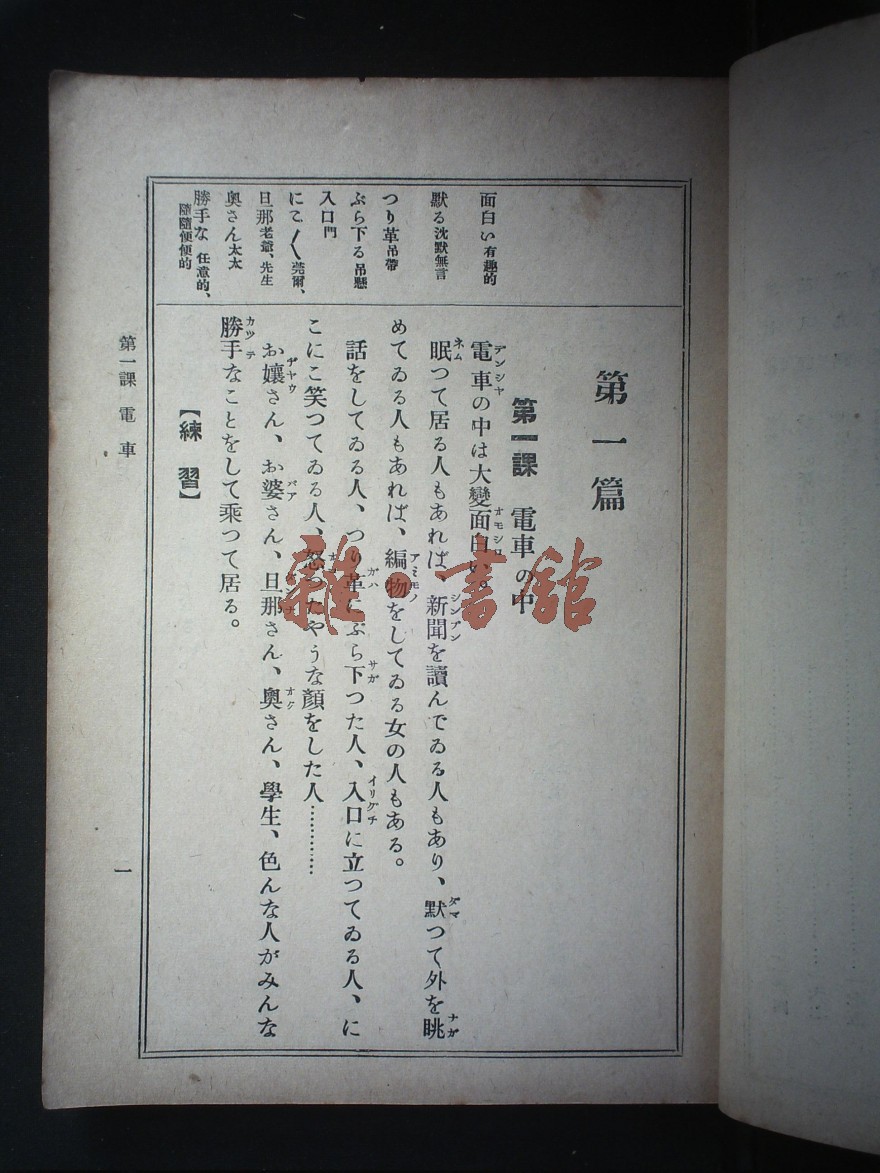 面白い 有趣的
默る 沈默無言
つり革 吊帶
ぶら下る 吊懸
入口 門
にこ〱 莞爾、
旦那 老爺、先生
奥さん 太太
勝手な 任意的、
隨隨便便的
第一篇
第一課 電車の中
電車の中は大變面白い。
眠つて居る人もあれば、新聞を讀んでゐる人もあり、默つて外を眺
めてゐる人もあれば、編物をしてゐる女の人もある。
話をしてゐる人、つり革にぶら下つた人、入口に立つてゐる人、に
こにこ笑つてゐる人、怒つたやうな顏をした人…………
お孃さん、お婆さん、旦那さん、奥さん、學生、色んな人がみんな
勝手なことをして乘つて居る。
【練習】
第一課 電車
一
雜·書館